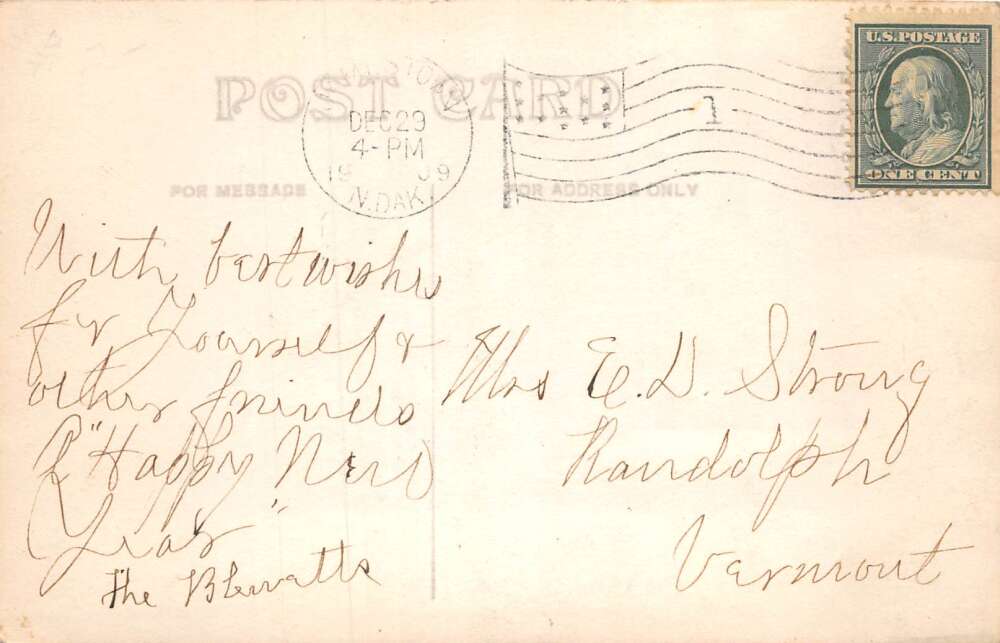 POST CARD
DEC 29
4-PM
1909
N.DAK.
1
U.S. POSTAGE
ONE CENT
FOR MESSAGE
FOR ADDRESS ONLY
With best wishes
for Yourself &
other friends
"Happy New
Year"
The Blewatts
Mrs E. D. Strong
Randolph
Vermont